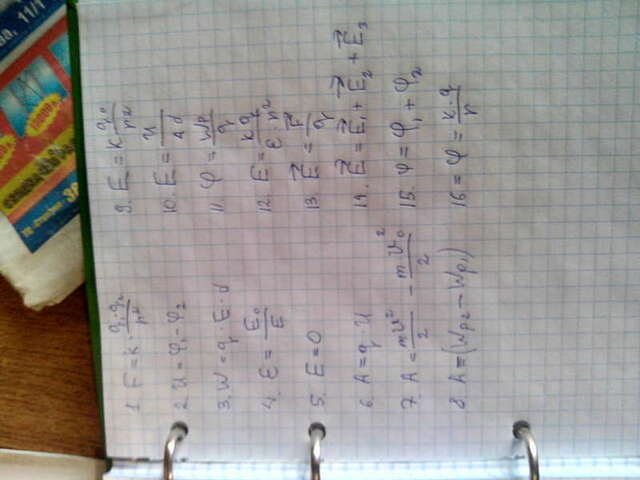 1. F = k · q₁·q₂/r²
2. U = φ₁ - φ₂
3. W = q · E · d
4. ε = E₀/E
5. E = 0
6. A = q · U
7. A = mv²/2 - mv₀²/2
8. A = (Wp₂ - Wp₁)
9. E = k q₀/r²
10. E = U/Δd
11. φ = Wp/q
12. E = kq/ε·r²
13. E⃗ = F⃗/q
14. E⃗ = E⃗₁ + E⃗₂ + E⃗₃
15. φ = φ₁ + φ₂
16. = φ = k·q/r
11/1